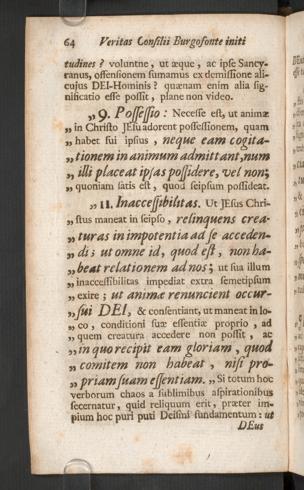 64 Veritas Consilii Burgofonte initi
tudines ? voluntne, ut æque, ac ipse Sancy-
ranus, offensionem sumamus ex demissione ali-
cujus DEI-Hominis ? quænam enim alia sig-
nificatio esse possit, plane non video.
„ 9. Possessio : Necesse est, ut animæ
„ in Christo JEsu adorent possessionem, quam
„ habet sui ipsius , neque eam cogita-
„ tionem in animum admittant, num
„ illi placeat ipsas possidere, vel non;
„ quoniam satis est, quod seipsum possideat.
„ 11. Inaccessibilitas. Ut JEsus Chri-
„ stus maneat in seipso, relinquens crea-
„ turas in impotentia ad se acceden-
„ di ; ut omne id, quod est, non ha-
„ beat relationem ad nos ; ut sua illum
„ inaccessibilitas impediat extra semetipsum
„ exire ; ut animæ renuncient occur-
„ sui DEI, & consentiant, ut maneat in lo-
„ co, conditioni suæ essentiæ proprio , ad
„ quem creatura accedere non possit, ac
„ in quo recipit eam gloriam , quod
„ comitem non habeat , nisi pro-
„ priam suam essentiam. „ Si totum hoc
verborum chaos a sublimibus aspirationibus
secernatur, quid reliquum erit, præter im-
pium hoc puri puti Deismi fundamentum : ut
DEus